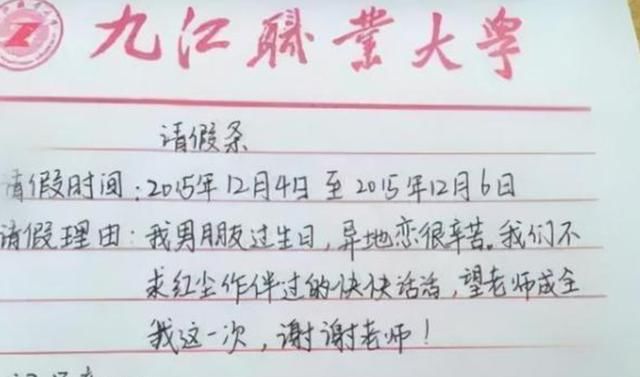 九江職業大学
请假条
请假时间:2015年12月4日至2015年12月6日
请假理由:我男朋友过生日,异地恋很辛苦。我们不
求红尘作伴过的快快活活,望老师成全
我这一次,谢谢老师!